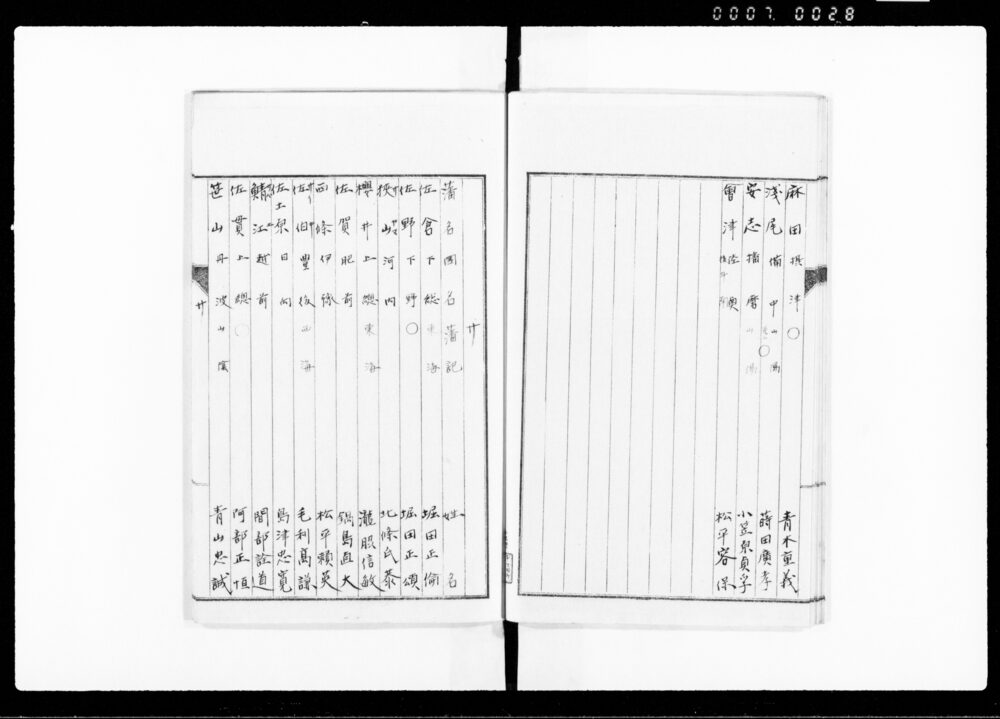 0007 0028
麻田 摂津 ○ 青木重義
浅尾 備中 山陽 蒔田廣孝
安志 播磨 山陽 小笠原貞孚
會津 陸奥 松平容保
サ
藩名 国名 藩記 姓名
佐倉 下総 東海 堀田正倫
佐野 下野 ○ 堀田正頌
狭山 河内 北條氏恭
櫻井 上総 東海 瀧脇信敏
佐賀 肥前 鍋島直大
西條 伊豫 松平頼英
佐伯 豊後 西海 毛利高謙
佐土原 日向 島津忠寛
鯖江 越前 間部詮道
佐貫 上総 ○ 阿部正恒
笹山 丹波 山陰 青山忠誠
サ